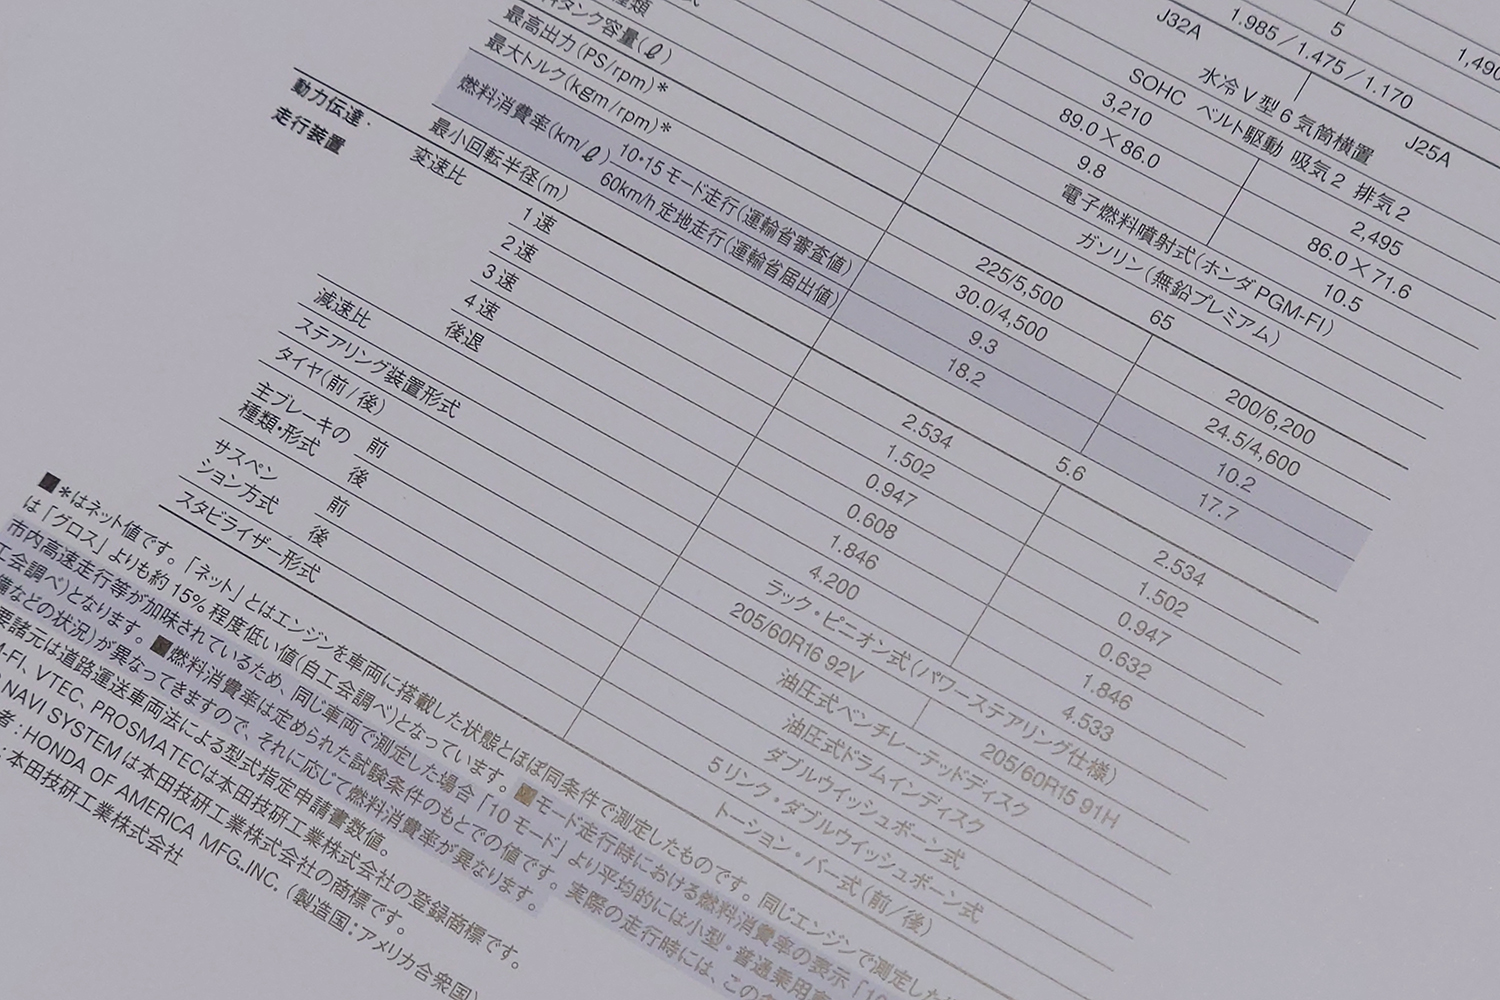 1.985／1.475／1.170
5
1,490
J32A
J25A
水冷V型6気筒横置
SOHC ベルト駆動 吸気2 排気2
3,210
2,495
89.0×86.0
86.0×71.6
9.8
10.5
電子燃料噴射式(ホンダPGM-FI)
種類
ガソリン(無鉛プレミアム)
タンク容量(ℓ)
65
最高出力(PS/rpm)*
225/5,500
200/6,200
最大トルク(kgm/rpm)*
30.0/4,500
24.5/4,600
燃料消費率(km/ℓ)
10・15モード走行(運輸省審査値)
9.3
10.2
60km/h定地走行(運輸省届出値)
18.2
17.7
最小回転半径(m)
5.6
動力伝達・
走行装置
変速比
1速
2.534
2.534
2速
1.502
1.502
3速
0.947
0.947
4速
0.608
0.632
後退
1.846
1.846
減速比
4.200
4.533
ステアリング装置形式
ラック・ピニオン式(パワーステアリング仕様)
タイヤ(前/後)
205/60R16 92V
205/60R15 91H
主ブレーキの
種類・形式
前
油圧式ベンチレーテッドディスク
後
油圧式ドラムインディスク
サスペン
ション方式
前
ダブルウイッシュボーン式
後
5リンク・ダブルウイッシュボーン式
スタビライザー形式
トーション・バー式(前/後)
■*はネット値です。「ネット」とはエンジンを車両に搭載した状態とほぼ同条件で測定したものです。同じエンジンで測定した
は「グロス」よりも約15%程度低い値(自工会調べ)となっています。■モード走行時における燃料消費率の表示「10
市内高速走行等が加味されているため、同じ車両で測定した場合「10モード」より平均的には小型・普通乗用
工会調べ)となります。■燃料消費率は定められた試験条件のもとでの値です。実際の走行時には、この
備などの状況)が異なってきますので、それに応じて燃料消費率が異なります。
要諸元は道路運送車両法による型式指定申請書数値。
M-FI、VTEC、PROSMATECは本田技研工業株式会社の登録商標です。
NAVI SYSTEMは本田技研工業株式会社の商標です。
者：HONDA OF AMERICA MFG.,INC.（製造国：アメリカ合衆国）
：本田技研工業株式会社